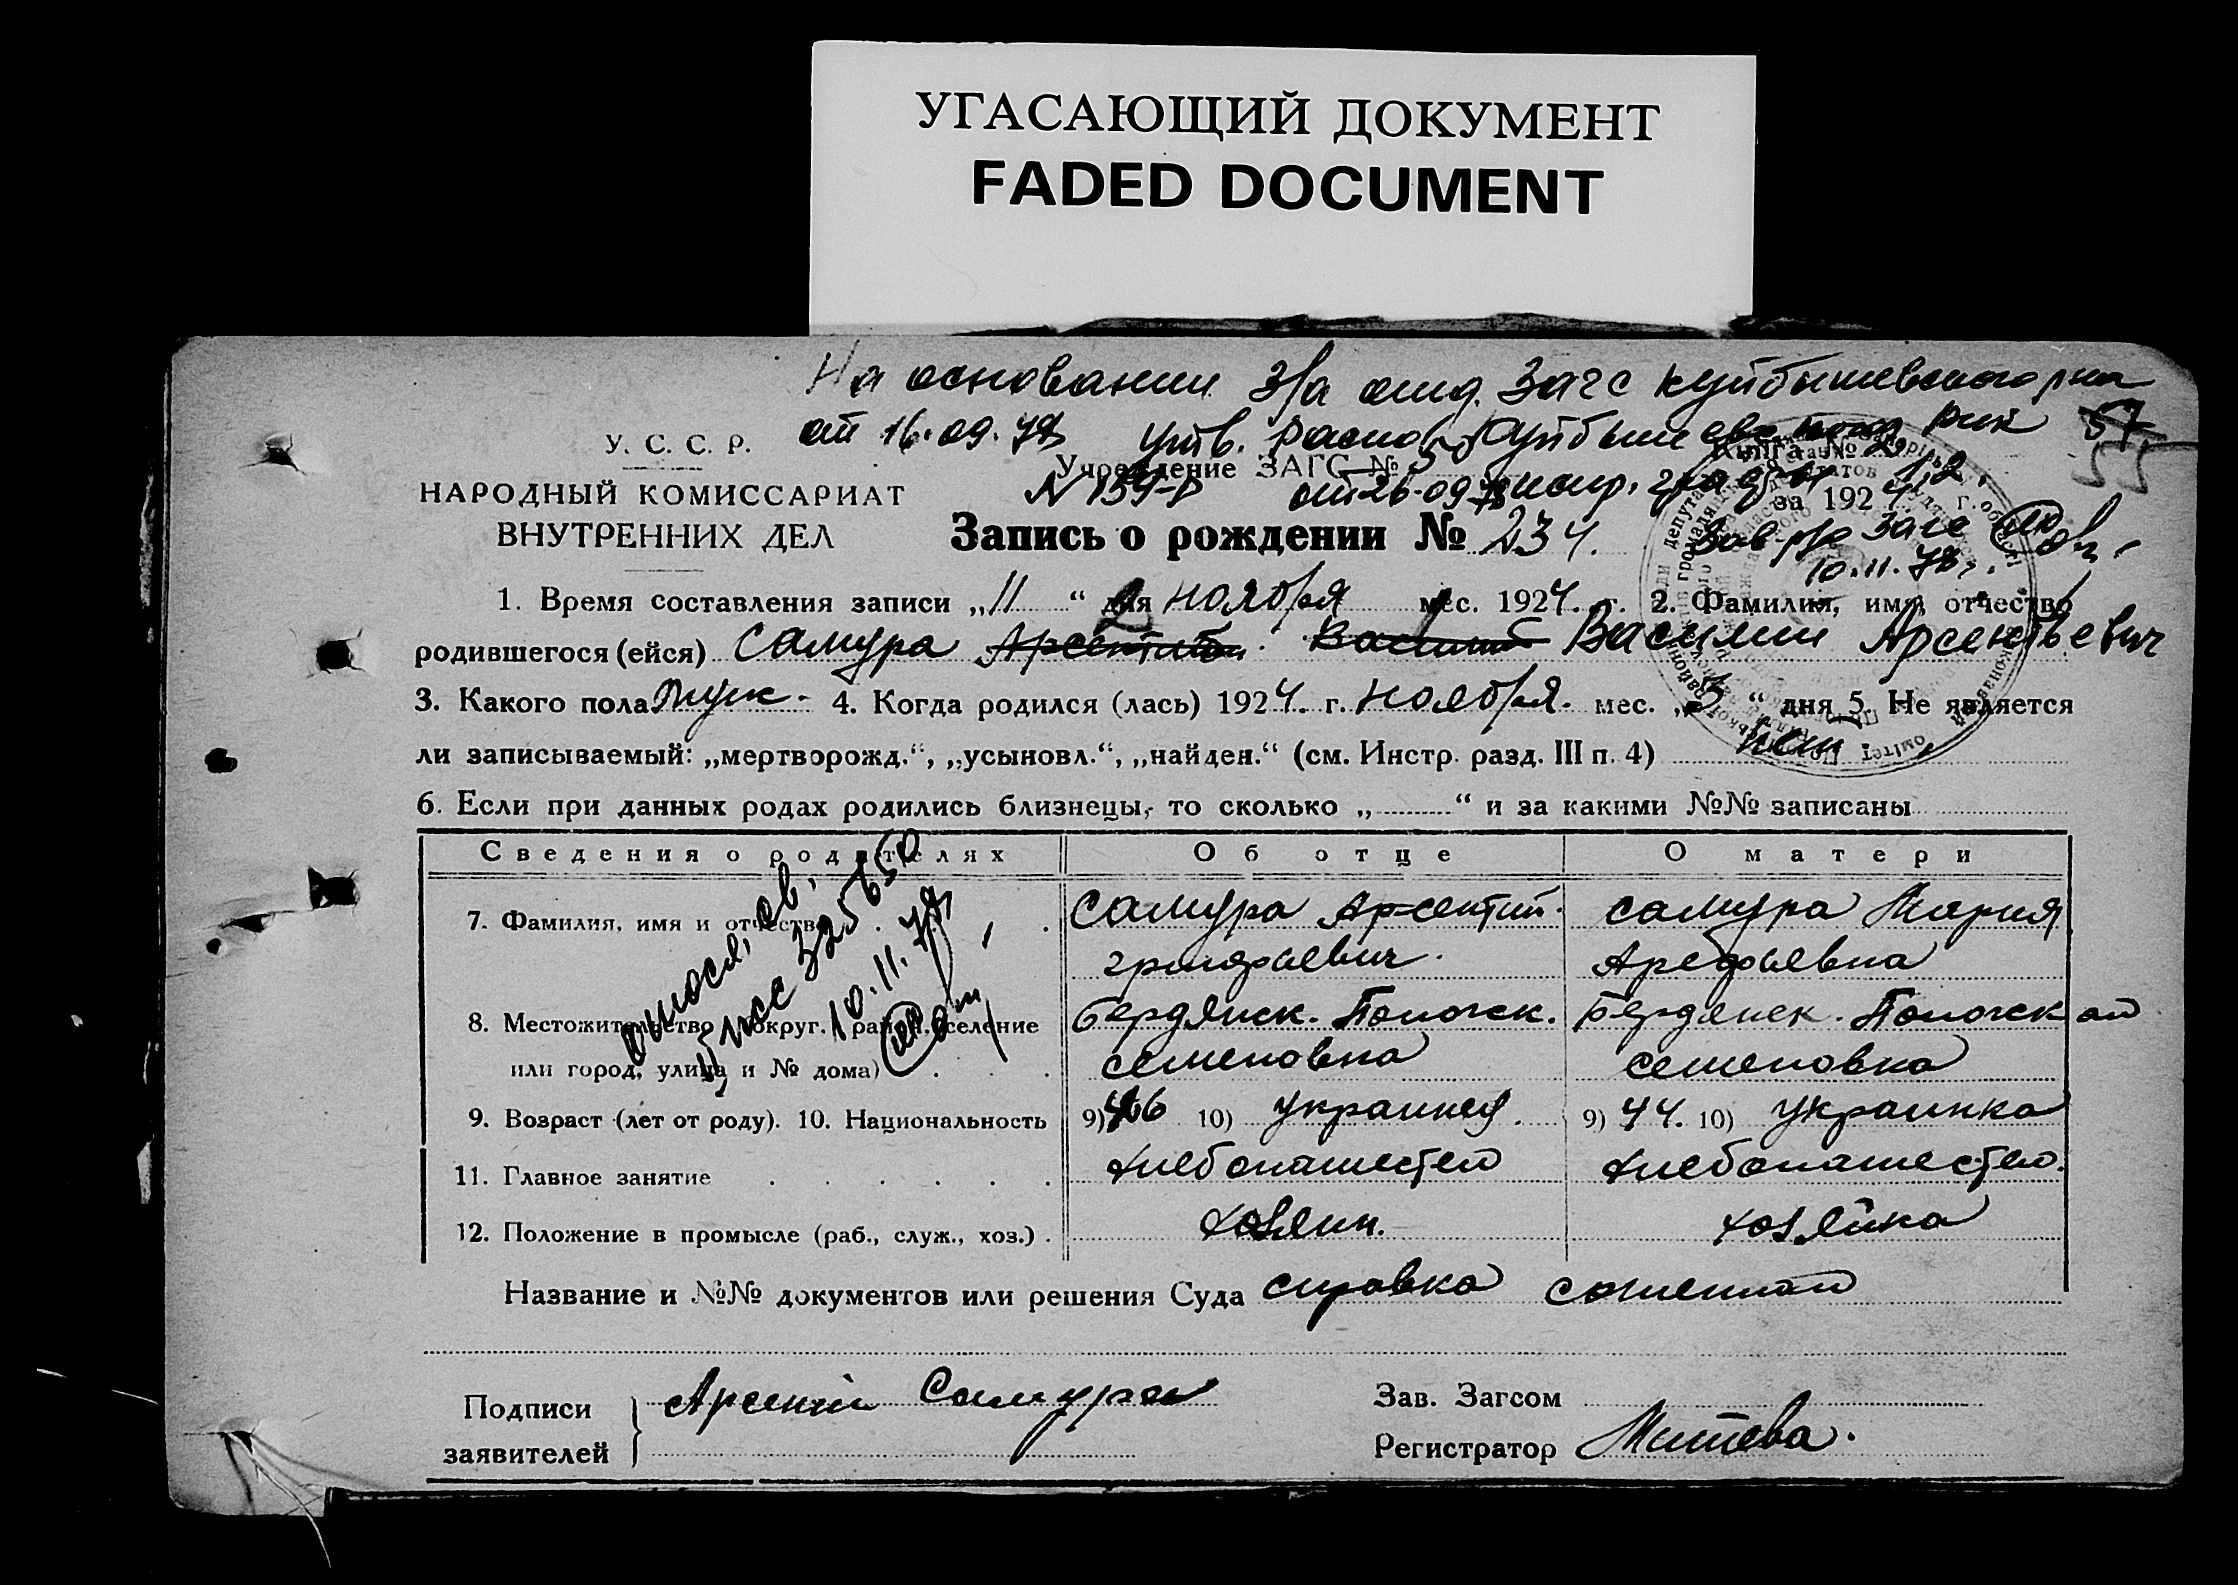 УГАСАЮЩИЙ ДОКУМЕНТ
FADED DOCUMENT
На основании з/а отд. Загс Куйбышевского р-на
от 16.09.78 Утв. Распор. Куйбышевского РИК 57
У. С. С. Р. Учреждение ЗАГС № 3 Книга № 55
НАРОДНЫЙ КОМИССАРИАТ N 159-р от 26.09.78 испр. за 1924 г.
ВНУТРЕННИХ ДЕЛ Запись о рождении № 234. Зав р/о Загс
10.11.78 г.
1. Время составления записи „11“ дня ноября мес. 1924. г. 2. Фамилия, имя, отчество
родившегося (ейся) Самура Арсентий Василий Василий Арсентьевич
3. Какого пола Муж. 4. Когда родился (лась) 1924. г. ноября. мес. „3“ дня 5. Не является
ли записываемый: „мертворожд.“, „усыновл.“, „найден.“ (см. Инстр. разд. III п. 4)
6. Если при данных родах родились близнецы, то сколько „ “ и за какими №№ записаны
Сведения о родителях Об отце О матери
7. Фамилия, имя и отчество Самура Арсентий Самура Мария
григорьевич. Арефьевна
8. Местожительство (округ, район, селение Бердянск. Пологск. Бердянск. Пологск ой
или город, улица и № дома) семеновка семеновка
9. Возраст (лет от роду). 10. Национальность 9) 46 10) украинец 9) 44. 10) украинка
11. Главное занятие хлебопашество хлебопашество.
12. Положение в промысле (раб., служ., хоз.) хозяин. хозяйка
10.11.78
Название и №№ документов или решения Суда справка
Подписи Арсений Самура Зав. Загсом
заявителей Регистратор